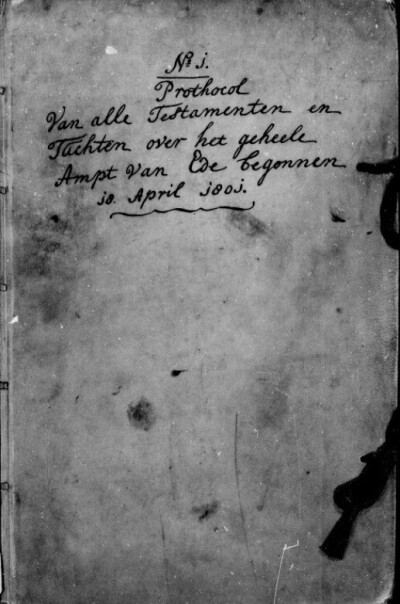 No j.
Prothocol
Van alle Testamenten en
Tuchten over het geheele
Ampt van Ede begonnen
j8. April j80j.